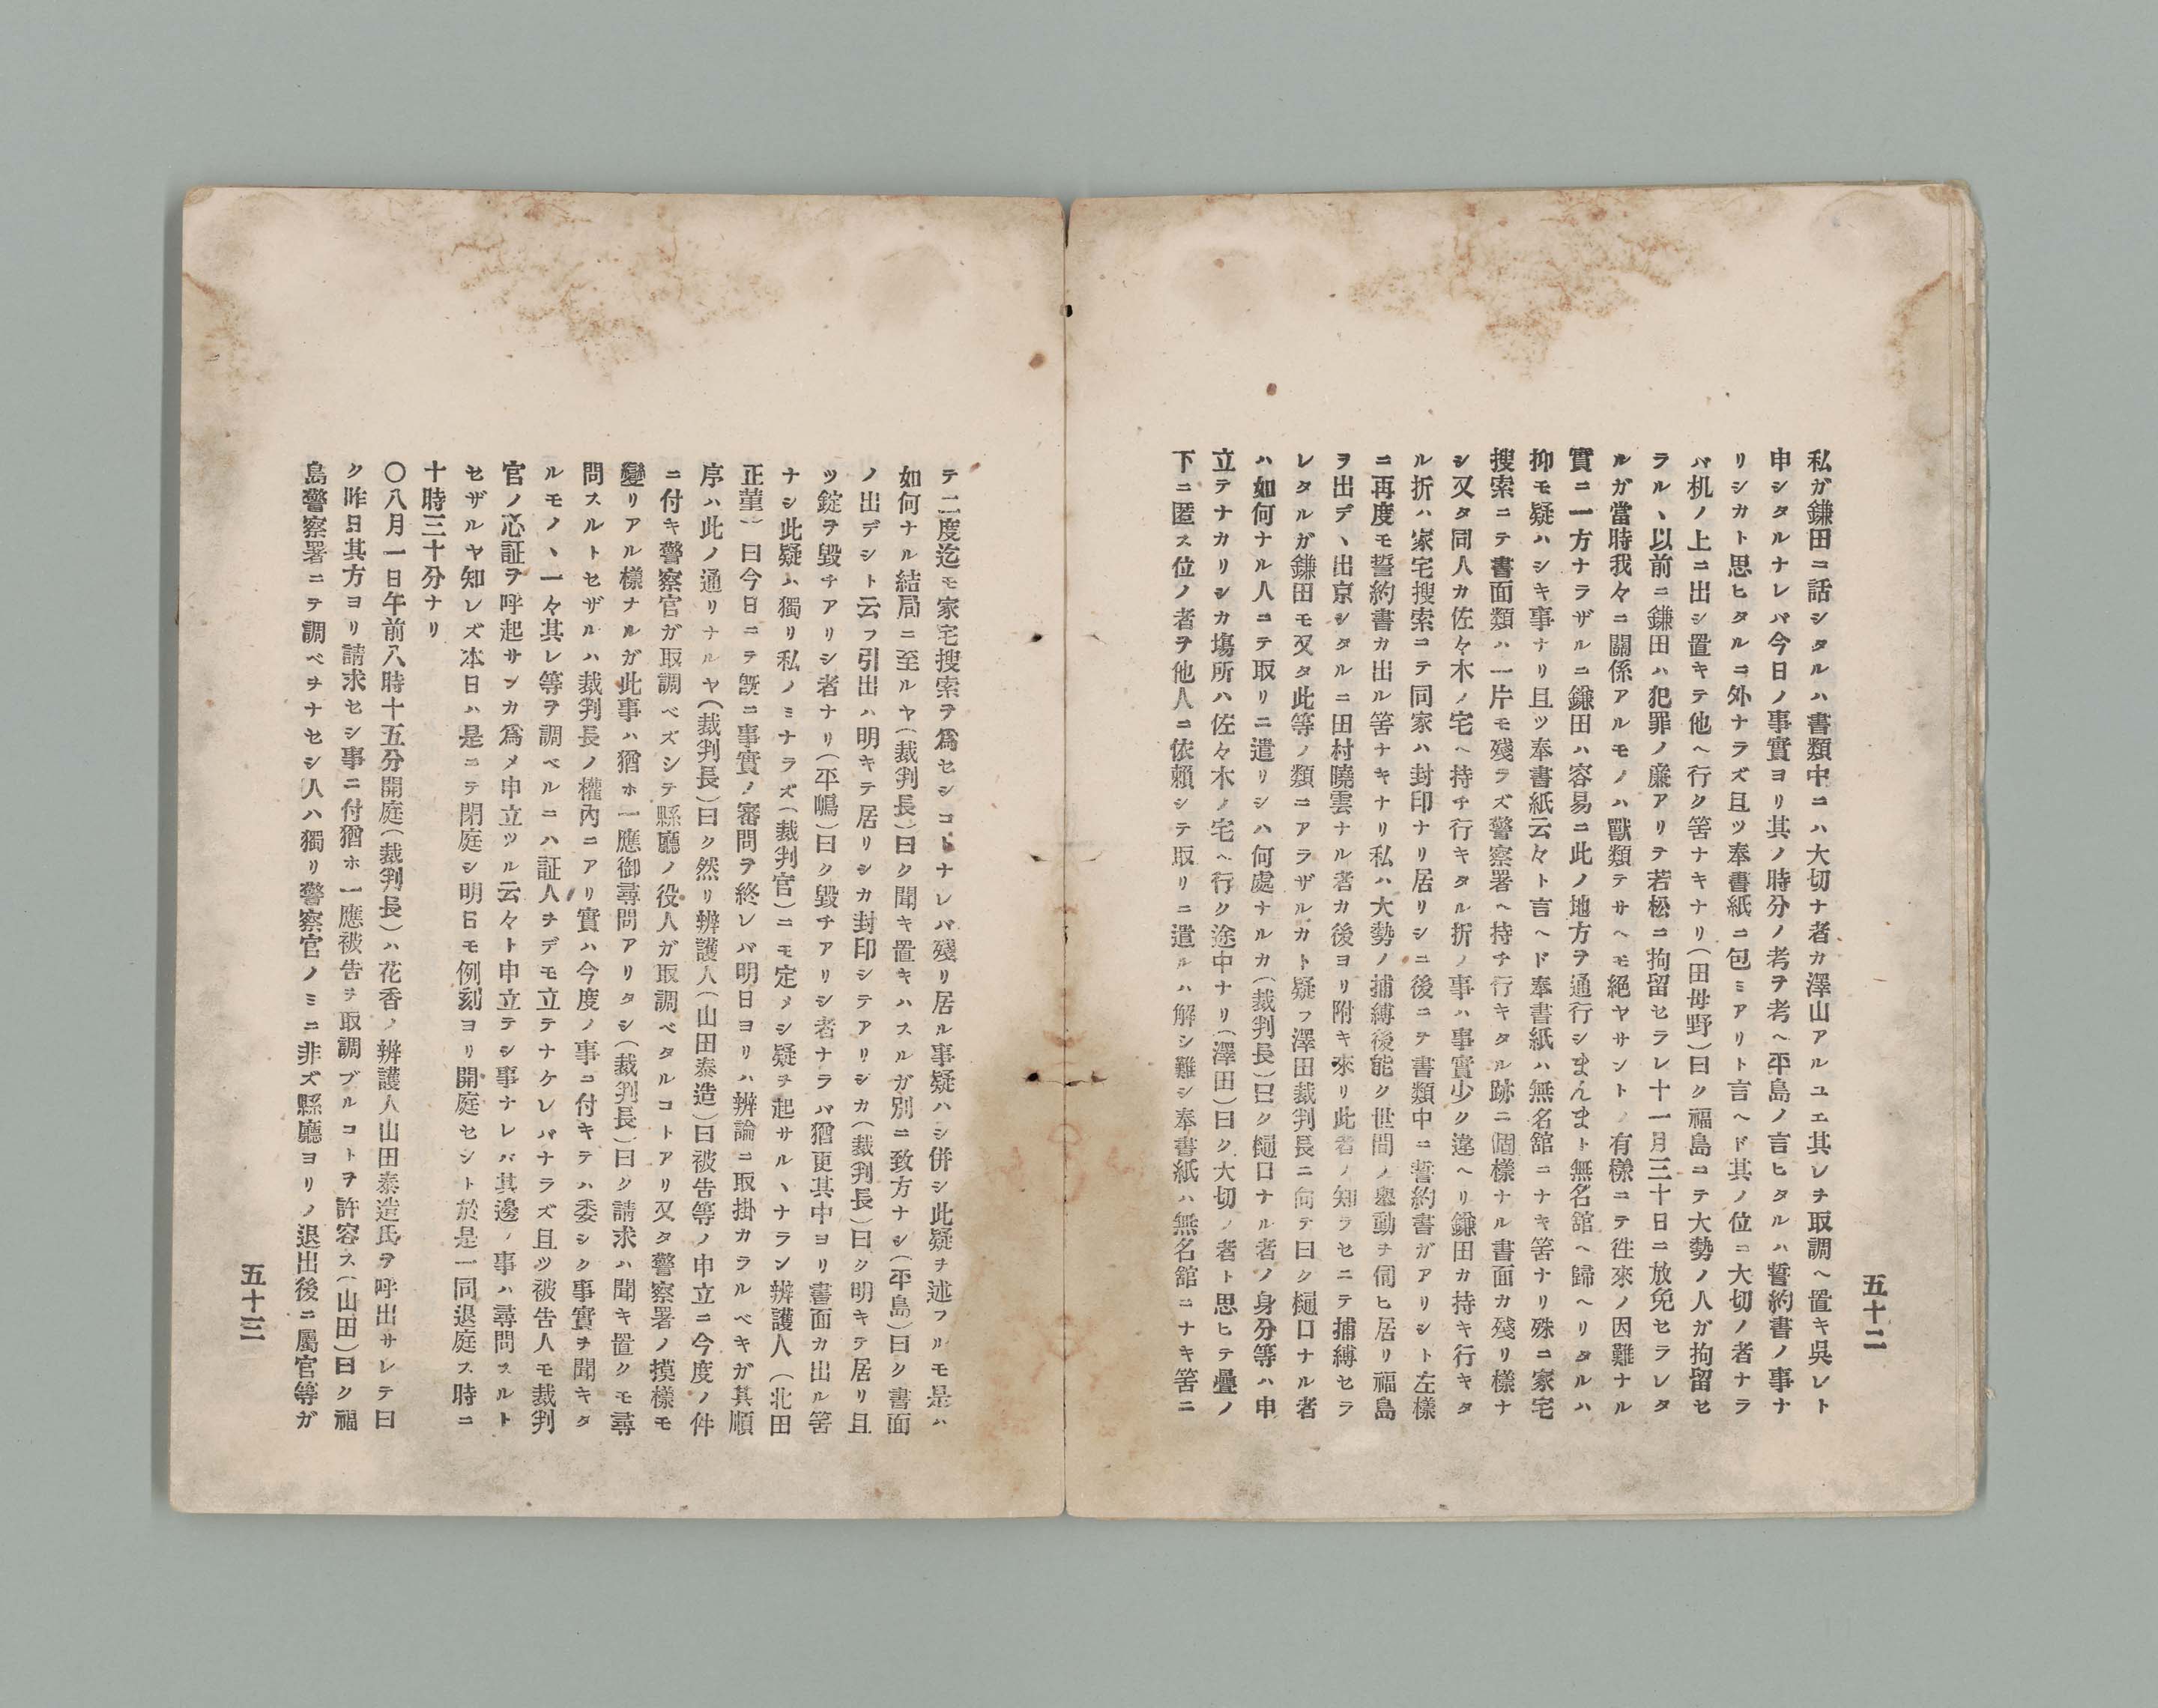 五十二
私ガ鎌田ニ話シタルハ書類中ニハ大切ナ者カ澤山アルユエ其レヲ取調ヘ置キ呉レト
申シタルナレバ今日ノ事實ヨリ其ノ時分ノ考ヲ考ヘ平島ノ言ヒタルハ誓約書ノ事ナ
リシカト思ヒタルニ外ナラズ且ツ奉書紙ニ包ミアリト言ヘド其ノ位ニ大切ノ者ナラ
バ机ノ上ニ出シ置キテ他ヘ行ク筈ナキナリ(田母野)曰ク福島ニテ大勢ノ人ガ拘留セ
ラルヽ以前ニ鎌田ハ犯罪ノ廉アリテ若松ニ拘留セラレ十一月三十日ニ放免セラレタ
ルガ當時我々ニ關係アルモノハ獸類テサヘモ絕ヤサントノ有樣ニテ徃來ノ因難ナル
實ニ一方ナラザルニ鎌田ハ容易ニ此ノ地方ヲ通行シまんまト無名舘ヘ歸ヘリタルハ
抑モ疑ハシキ事ナリ且ツ奉書紙云々ト言ヘド奉書紙ハ無名舘ニナキ筈ナリ殊ニ家宅
搜索ニテ書面類ハ一片モ殘ラズ警察署ヘ持チ行キタル跡ニ個樣ナル書面カ殘リ樣ナ
シ又タ同人カ佐々木ノ宅ヘ持チ行キタル折ノ事ハ事實少ク違ヘリ鎌田カ持キ行キタ
ル折ハ家宅搜索ニテ同家ハ封印ナリ居リシニ後ニテ書類中ニ誓約書ガアリシト左樣
ニ再度モ誓約書カ出ル筈ナキナリ私ハ大勢ノ捕縛後能ク世間ノ擧動ヲ伺ヒ居リ福島
ヲ出デヽ出京シタルニ田村曉雲ナル者カ後ヨリ附キ來リ此者ノ知ラセニテ捕縛セラ
レタルガ鎌田モ又タ此等ノ類ニアラザルカト疑フ澤田裁判長ニ向テ曰ク樋口ナル者
ハ如何ナル人ニテ取リニ遣リシハ何處ナルカ(裁判長)曰ク樋口ナル者ノ身分等ハ申
立テナカリシカ塲所ハ佐々木ノ宅ヘ行ク途中ナリ(澤田)曰ク大切ノ者ト思ヒテ疊ノ
下ニ匿ス位ノ者ヲ他人ニ依賴シテ取リニ遣ルハ解シ難シ奉書紙ハ無名舘ニナキ筈ニ
テ二度迄モ家宅搜索ヲ爲セシコトナレバ殘リ居ル事疑ハシ併シ此疑ヲ述フルモ是ハ
如何ナル結局ニ至ルヤ(裁判長)曰ク聞キ置キハスルガ別ニ致方ナシ(平島)曰ク書面
ノ出デシト云フ引出ハ明キテ居リシカ封印シテアリシカ(裁判長)曰ク明キテ居リ且
ツ錠ヲ毀チアリシ者ナリ(平嶋)曰ク毀チアリシ者ナラバ猶更其中ヨリ書面カ出ル筈
ナシ此疑ハ獨リ私ノミナラズ(裁判官)ニモ定メシ疑ヲ起サルヽナラン辨護人(北田
正董)曰今日ニテ既ニ事實ノ審問ヲ終レバ明日ヨリハ辨論ニ取掛カラルベキガ其順
序ハ此ノ通リナルヤ(裁判長)曰ク然リ辨護人(山田泰造)曰被告等ノ申立ニ今度ノ件
ニ付キ警察官ガ取調ベズシテ縣廳ノ役人ガ取調ベタルコトアリ又タ警察署ノ摸樣モ
變リアル樣ナルガ此事ハ猶ホ一應御尋問アリタシ(裁判長)曰ク請求ハ聞キ置クモ尋
問スルトセザルハ裁判長ノ權內ニアリ實ハ今度ノ事ニ付キテハ委シク事實ヲ聞キタ
ルモノヽ一々其レ等ヲ調ベルニハ証人ヲデモ立テナケレバナラズ且ツ被告人モ裁判
官ノ心証ヲ呼起サンカ爲メ申立ツル云々ト申立テシ事ナレバ其邊ノ事ハ尋問スルト
セザルヤ知レズ本日ハ是ニテ閉庭シ明日モ例刻ヨリ開庭セント於是一同退庭ス時ニ
十時三十分ナリ
〇八月一日午前八時十五分開庭(裁判長)ハ花香ノ辨護人山田泰造氏ヲ呼出サレテ曰
ク昨日其方ヨリ請求セシ事ニ付猶ホ一應被告ヲ取調ブルコトヲ許容ス(山田)曰ク福
島警察署ニテ調ベヲナセシ人ハ獨リ警察官ノミニ非ズ縣廳ヨリノ退出後ニ屬官等ガ
五十三